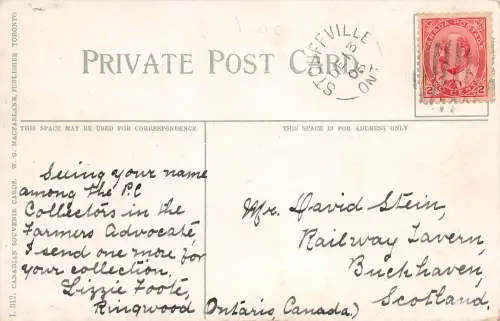 PRIVATE POST CARD
STOUFFVILLE
DE 13
ONT
CANADA POSTAGE
2 2
THIS SPACE MAY BE USED FOR CORRESPONDENCE
THIS SPACE IS FOR ADDRESS ONLY
Seeing your name
among the P.C
Collectors in the
Farmers Advocate,
I send one more for
your collection.
Lizzie Foote,
Ringwood (Ontario, Canada.)
Mr. David Stein,
Railway Tavern,
Buckhaven,
Scotland.
I. 317. CANADIAN SOUVENIR CARDS. W. G. MACFARLANE, PUBLISHER TORONTO